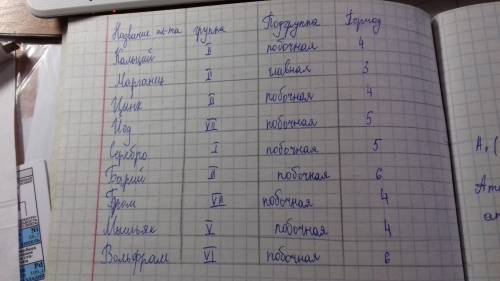 Название эл-та группа Подгруппа Период
Кальций II побочная 4
Марганец II главная 3
Цинк II побочная 4
Йод VII побочная 5
Серебро I побочная 5
Барий II побочная 6
Бром VII побочная 4
Мышьяк V побочная 4
Вольфрам VI побочная 6
Ni
Pd